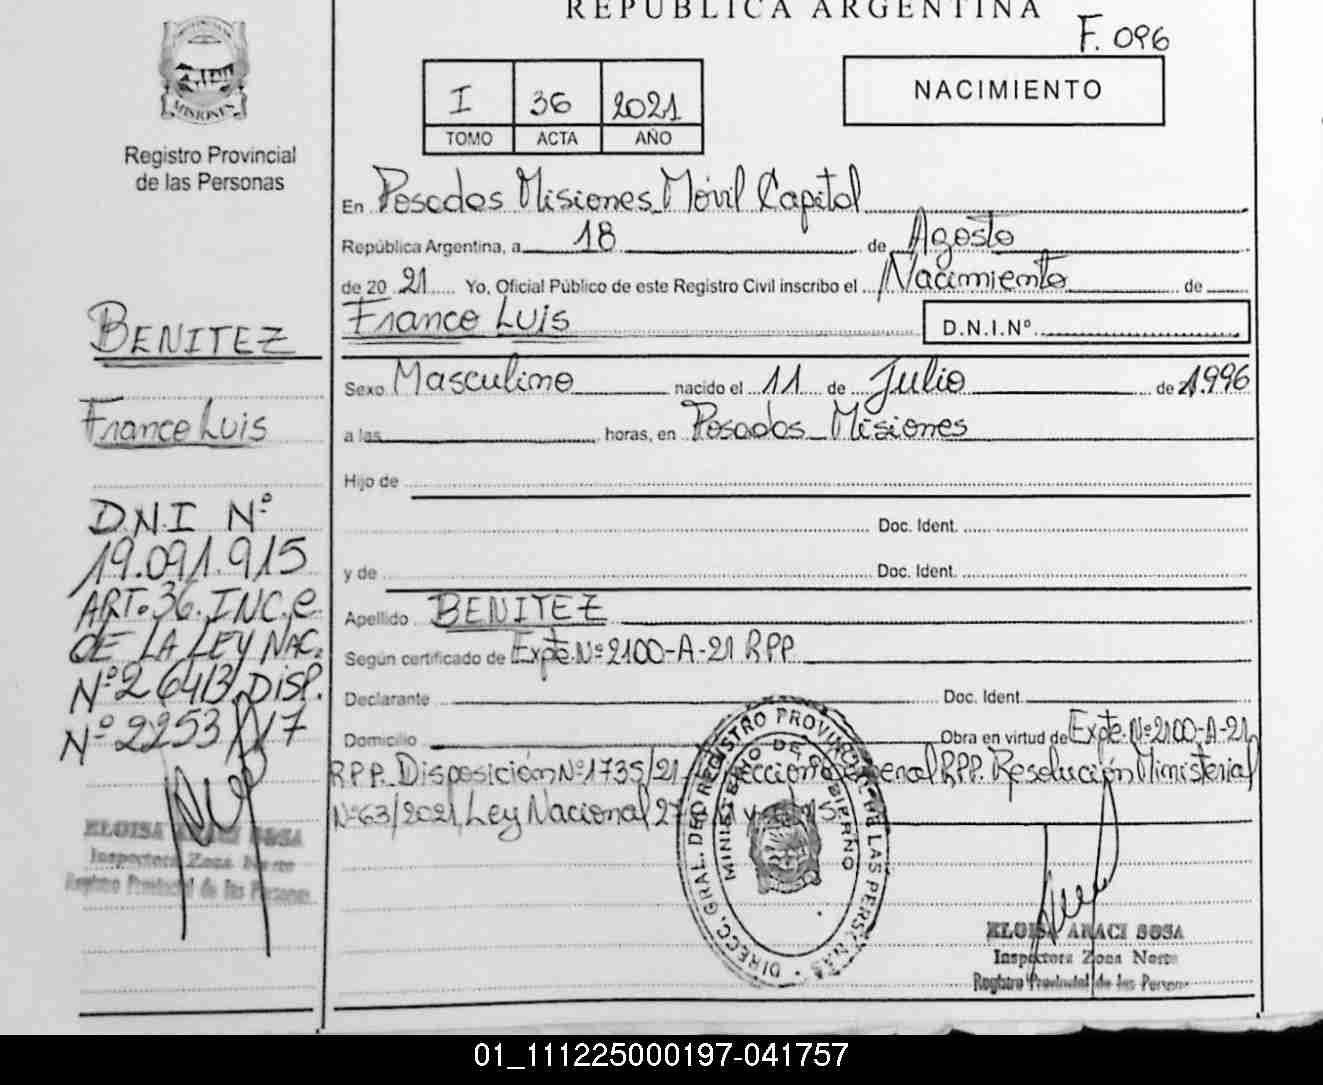 REPÚBLICA ARGENTINA
F. 096
MISIONES
Registro Provincial
de las Personas
I 36 2021
TOMO ACTA AÑO
NACIMIENTO
En Posadas Misiones Móvil Capital
República Argentina, a 18 de Agosto
de 20 21 Yo, Oficial Público de este Registro Civil inscribo el Nacimiento de
Franco Luis D.N.I.Nº
Sexo Masculino nacido el 11 de Julio de 1.996
a las horas, en Posadas Misiones
Hijo de
Doc. Ident.
y de Doc. Ident.
Apellido BENITEZ
Según certificado de Expte. Nº 2100-A-21 RPP
Declarante Doc. Ident.
Domicilio Obra en virtud de Expte. Nº 2100-A-21
RPP. Disposición Nº 1735/21 Dirección General RPP. Resolución Ministerial
Nº 63/2021, Ley Nacional
BENITEZ
Franco Luis
D.N.I Nº
19.091.915
ART. 36. INC. e
DE LA LEY NAC.
Nº 26413, DISP.
Nº 2253/17
ELOISA ARACI SOSA
Inspectora Zona Norte
Registro Provincial de las Personas
DIRECC. GRAL. DEL REGISTRO PROVINCIAL DE LAS PERSONAS
MINISTERIO DE GOBIERNO
ELOISA ARACI SOSA
Inspectora Zona Norte
Registro Provincial de las Personas
01_111225000197-041757